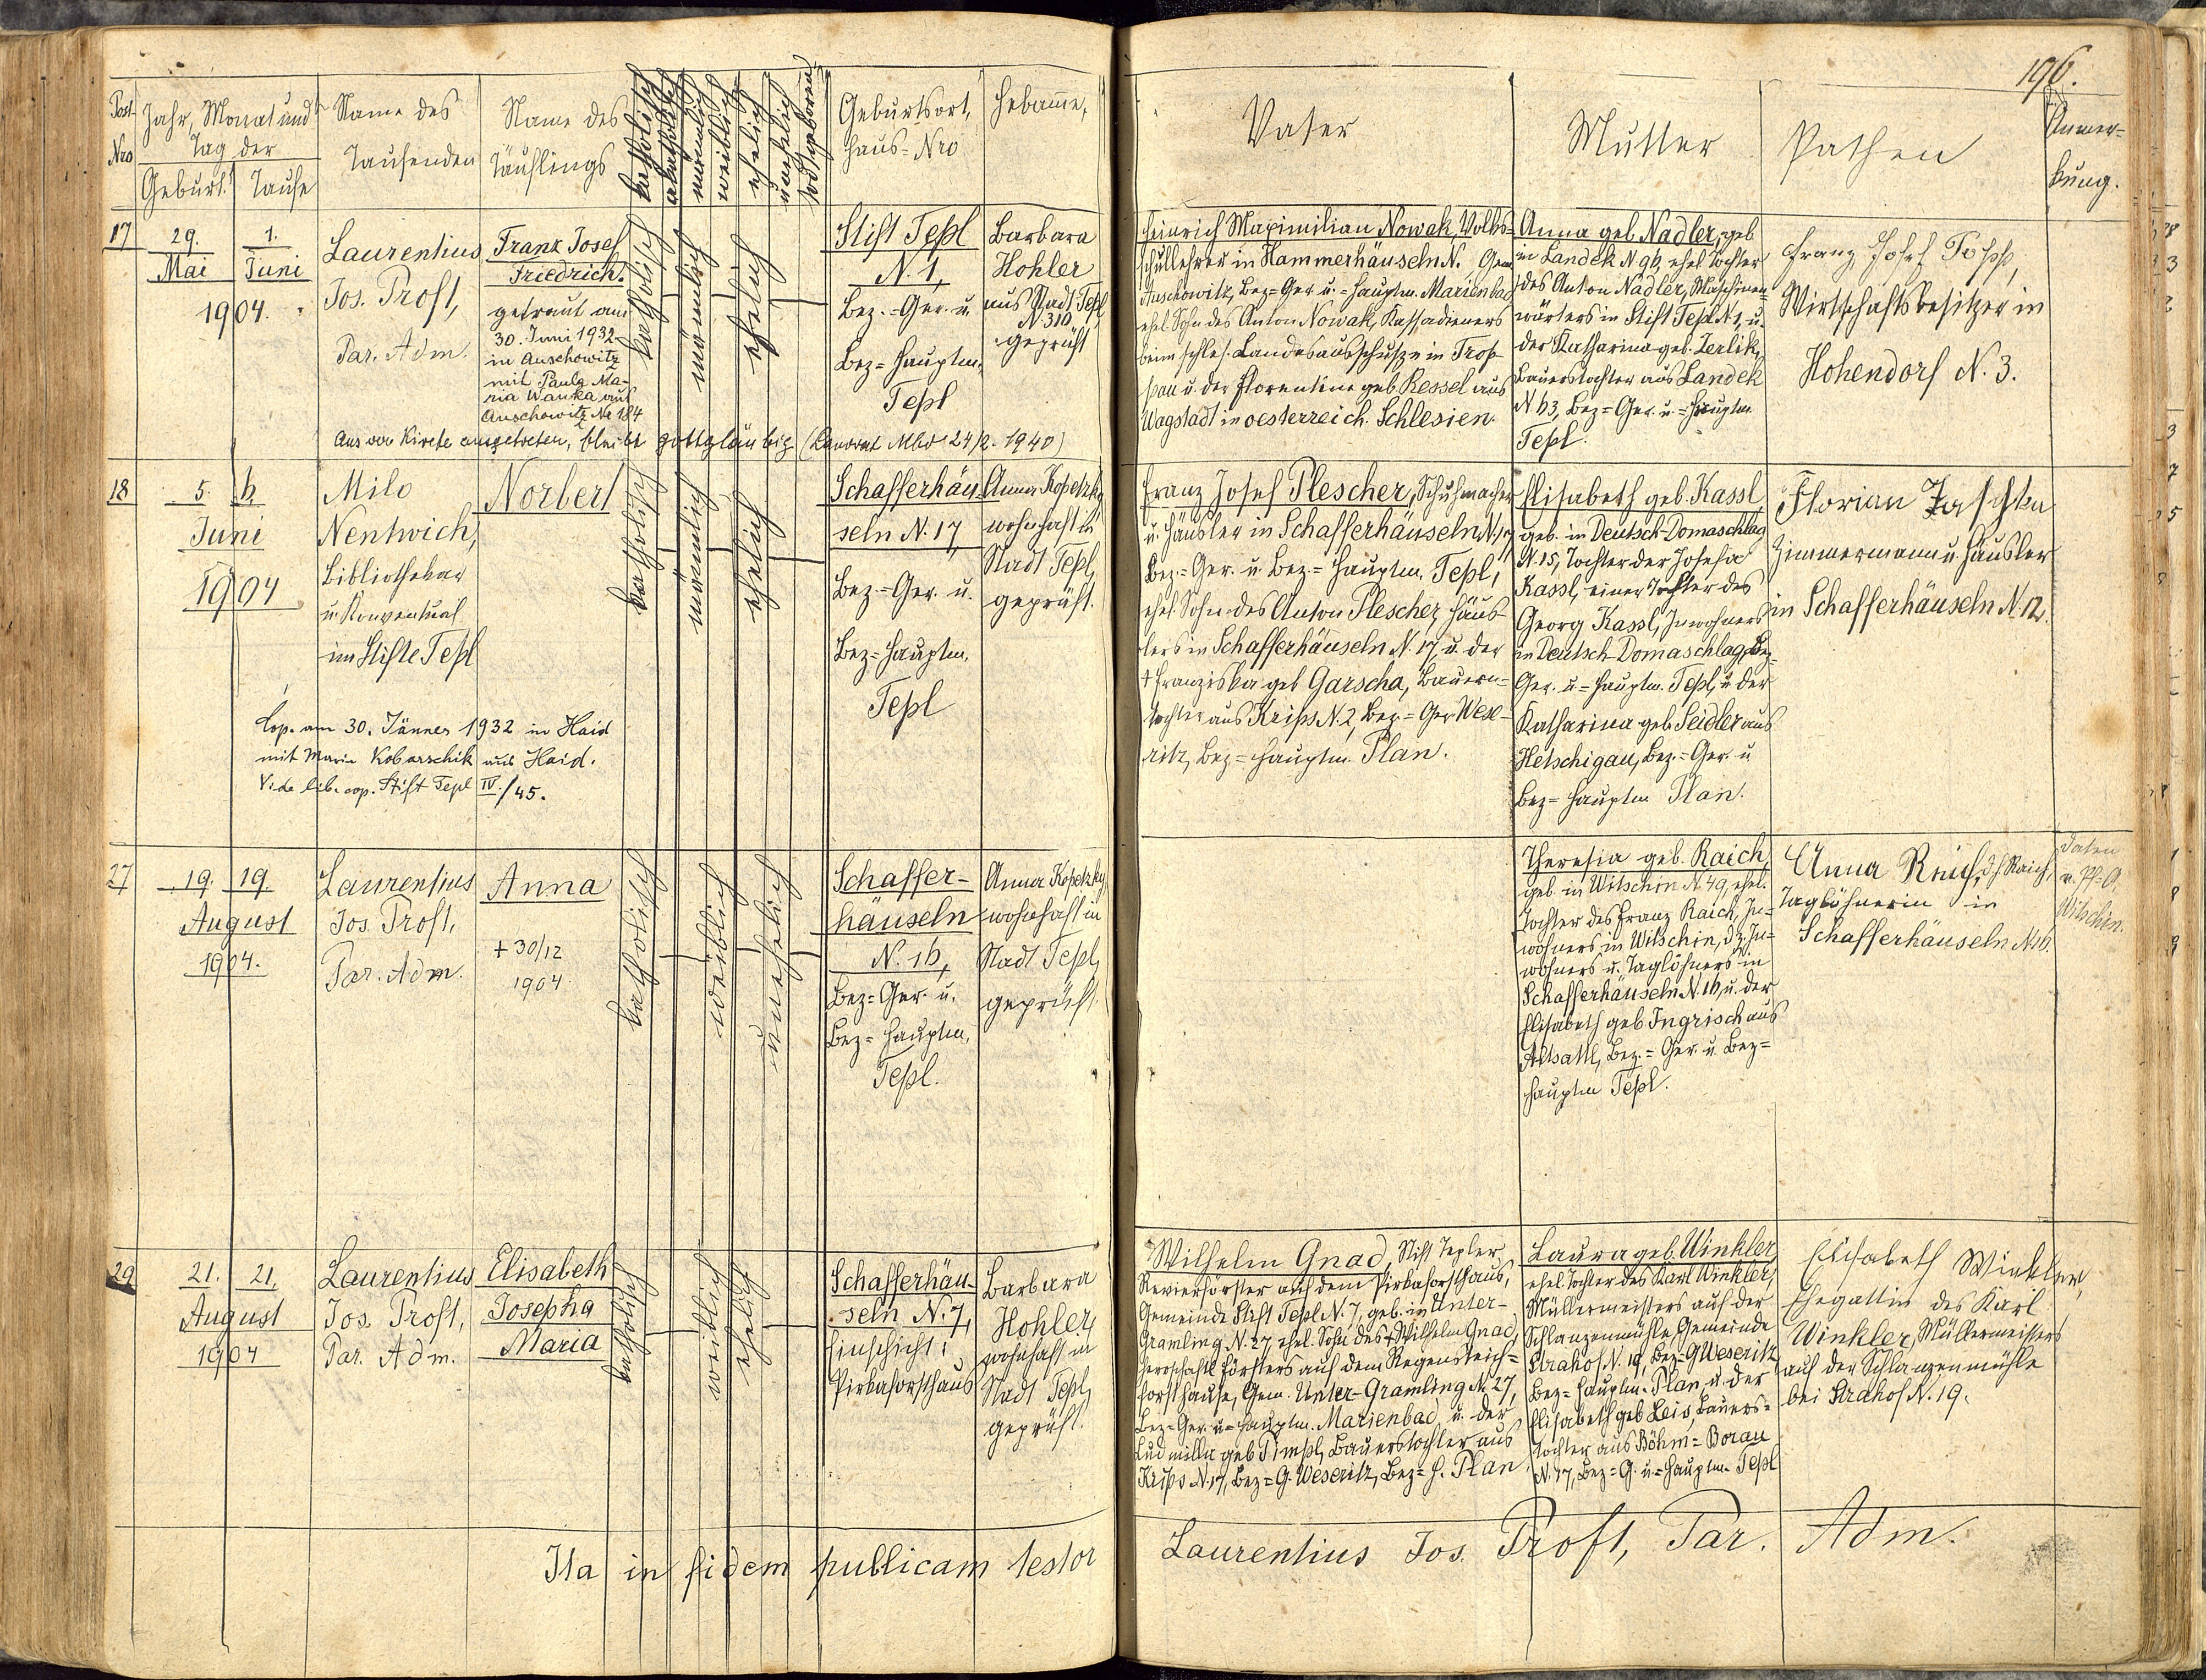 196.
Post-
Nro
Jahr, Monat und
Tag der
Geburt.
Taufe
Name des
Taufenden
Name des
Täuflings
katholisch
akatholisch
männlich
weiblich
ehelich
unehelich
todtgeboren
Geburtsort,
Haus-Nro
Hebamme,
Vater
Mutter
Pathen
Anmer-
kung.
17
29.
1.
Mai
Juni
1904.
Laurentius
Jos. Proft,
Par. Adm.
Franz Josef
Friedrich.
getraut am
30. Juni 1932
in Auschowitz
mit Paula Ma-
ria Wanka aus
Auschowitz No 184
Aus der Kirche ausgetreten, bleibt gottgläubig (Landrat Mbd 24/2. 1940)
katholisch
männlich
ehelich
Stift Tepl
N. 1,
Bez.-Ger. u.
Bez-Hauptm.
Tepl
Barbara
Hohler
aus Stadt Tepl
N 310,
geprüft
Heinrich Maximilian Nowak, Volks-
schullehrer in Hammerhäuseln N. Gem.
Auschowitz, Bez-Ger. u.-Hauptm. Marienbad
ehel. Sohn des Anton Nowak, Kassadieners
beim schles. Landesausschusse in Trop-
pau u. der Florentine geb. Kessel aus
Wagstadt in oesterreich. Schlesien.
Anna geb. Nadler, geb.
in Landek N 96, ehel. Tochter
des Anton Nadler, Maschinen-
wärters in Stift Tepl N 1, u.
der Katharina geb. Zerlik,
Bauerstochter aus Landek
N 63, Bez-Ger. u.-Hauptm.
Tepl.
Franz Josef Topp,
Wirtschaftsbesitzer in
Hohendorf N. 3.
18
5.
6.
Juni
1904
Milo
Nentwich,
Bibliothekar
u. Konventual
im Stifte Tepl
Norbert
Cop. am 30. Jänner 1932 in Haid
mit Marie Kobarschik aus Haid.
Vide lib. cop. Stift Tepl IV./45.
katholisch
männlich
ehelich
Schafferhäu-
seln N. 17,
Bez-Ger. u.
Bez-Hauptm.
Tepl
Anna Kopetzky
wohnhaft in
Stadt Tepl,
geprüft.
Franz Josef Plescher, Schuhmacher
u. Häusler in Schafferhäuseln N. 17
Bez-Ger. u. Bez-Hauptm. Tepl,
ehel. Sohn des Anton Plescher, Häus-
lers in Schafferhäuseln N. 17, u. der
† Franziska geb. Garscha, Bauern-
tochter aus Krips N. 2, Bez-Ger Wese-
ritz, Bez-Hauptm. Plan.
Elisabeth geb. Kassl
geb. in Deutsch-Domaschlag
N. 15, Tochter der Josefa
Kassl, einer Tochter des
Georg Kassl, Inwohners
in Deutsch-Domaschlag, Bez-
Ger. u-Hauptm. Tepl, u. der
Katharina geb. Seidler aus
Hetschigau, Bez.-Ger. u.
Bez-Hauptm Plan.
Florian Jaschka
Zimmermann u. Häusler
in Schafferhäuseln N. 12.
27
19.
19.
August
1904.
Laurentius
Jos. Proft,
Par. Adm.
Anna
+ 30/12
1904
katholisch
weiblich
unehelich
Schaffer-
häuseln
N. 16,
Bez-Ger. u.
Bez-Hauptm.
Tepl.
Anna Kopetzky,
wohnhaft in
Stadt Tepl,
geprüft.
Theresia geb. Raich,
geb. in Witschin N. 49, ehel.
Tochter des Franz Raich, In-
wohners in Witschin, dz. In-
wohners u. Taglöhners in
Schafferhäuseln N. 16, u. der
Elisabeth geb Ingrisch aus
Altsattl, Bez.-Ger. u. Bez-
Hauptm Tepl.
Anna Raich,
Taglöhnerin in
Schafferhäuseln N. 16.
Daten
v. Pf-A.
Witschin.
29
21.
21.
August
1904
Laurentius
Jos. Proft,
Par. Adm.
Elisabeth
Josepha
Maria
katholisch
weiblich
ehelich
Schafferhäu-
seln N. 7,
Einschicht:
Pirkaforsthaus
Barbara
Hohler,
wohnhaft in
Stadt Tepl,
geprüft.
Wilhelm Gnad, Stift Tepler
Revierförster auf dem Pirkaforsthaus,
Gemeinde Stift Tepl N. 7, geb. in Unter-
Gramling N. 27, ehel. Sohn des + Wilhelm Gnad,
herrschaftl. Försters auf dem Regensteich-
forsthause, Gem. Unter-Gramling N. 27,
Bez-Ger. u-Hauptm. Marienbad, u. der
Ludmilla geb Pimpl, Bauerstochter aus
Krips N. 17, Bez-G. Weseritz, Bez-H. Plan
Laura geb. Winkler,
ehel. Tochter des Karl Winkler,
Müllermeisters auf der
Schlanzenmühle, Gemeinde
Strahof N. 19, Bez-G Weseritz
Bez-Hauptm. Plan, u. der
Elisabeth geb Leis, Bauers-
tochter aus Böhm-Borau
N. 17, Bez-G. u-Hauptm. Tepl
Elisabeth Winkler,
Ehegattin des Karl
Winkler, Müllermeisters
auf der Schlanzenmühle
bei Strahof N. 19.
Ita in fidem publicam testor
Laurentius Jos. Proft, Par. Adm.